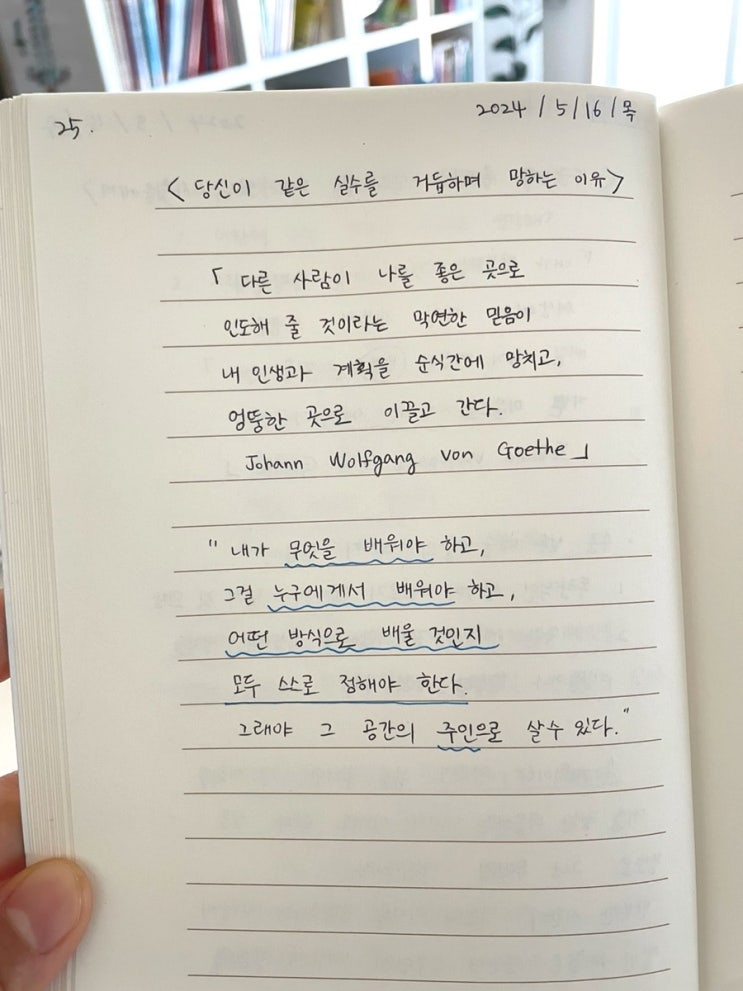 25.
2024 / 5 / 16 / 목
< 당신이 같은 실수를 거듭하며 망하는 이유 >
「 다른 사람이 나를 좋은 곳으로
인도해 줄 것이라는 막연한 믿음이
내 인생과 계획을 순식간에 망치고,
엉뚱한 곳으로 이끌고 간다.
Johann Wolfgang von Goethe 」
" 내가 무엇을 배워야 하고,
그걸 누구에게서 배워야 하고,
어떤 방식으로 배울 것인지
모두 스스로 정해야 한다.
그래야 그 공간의 주인으로 살 수 있다. "